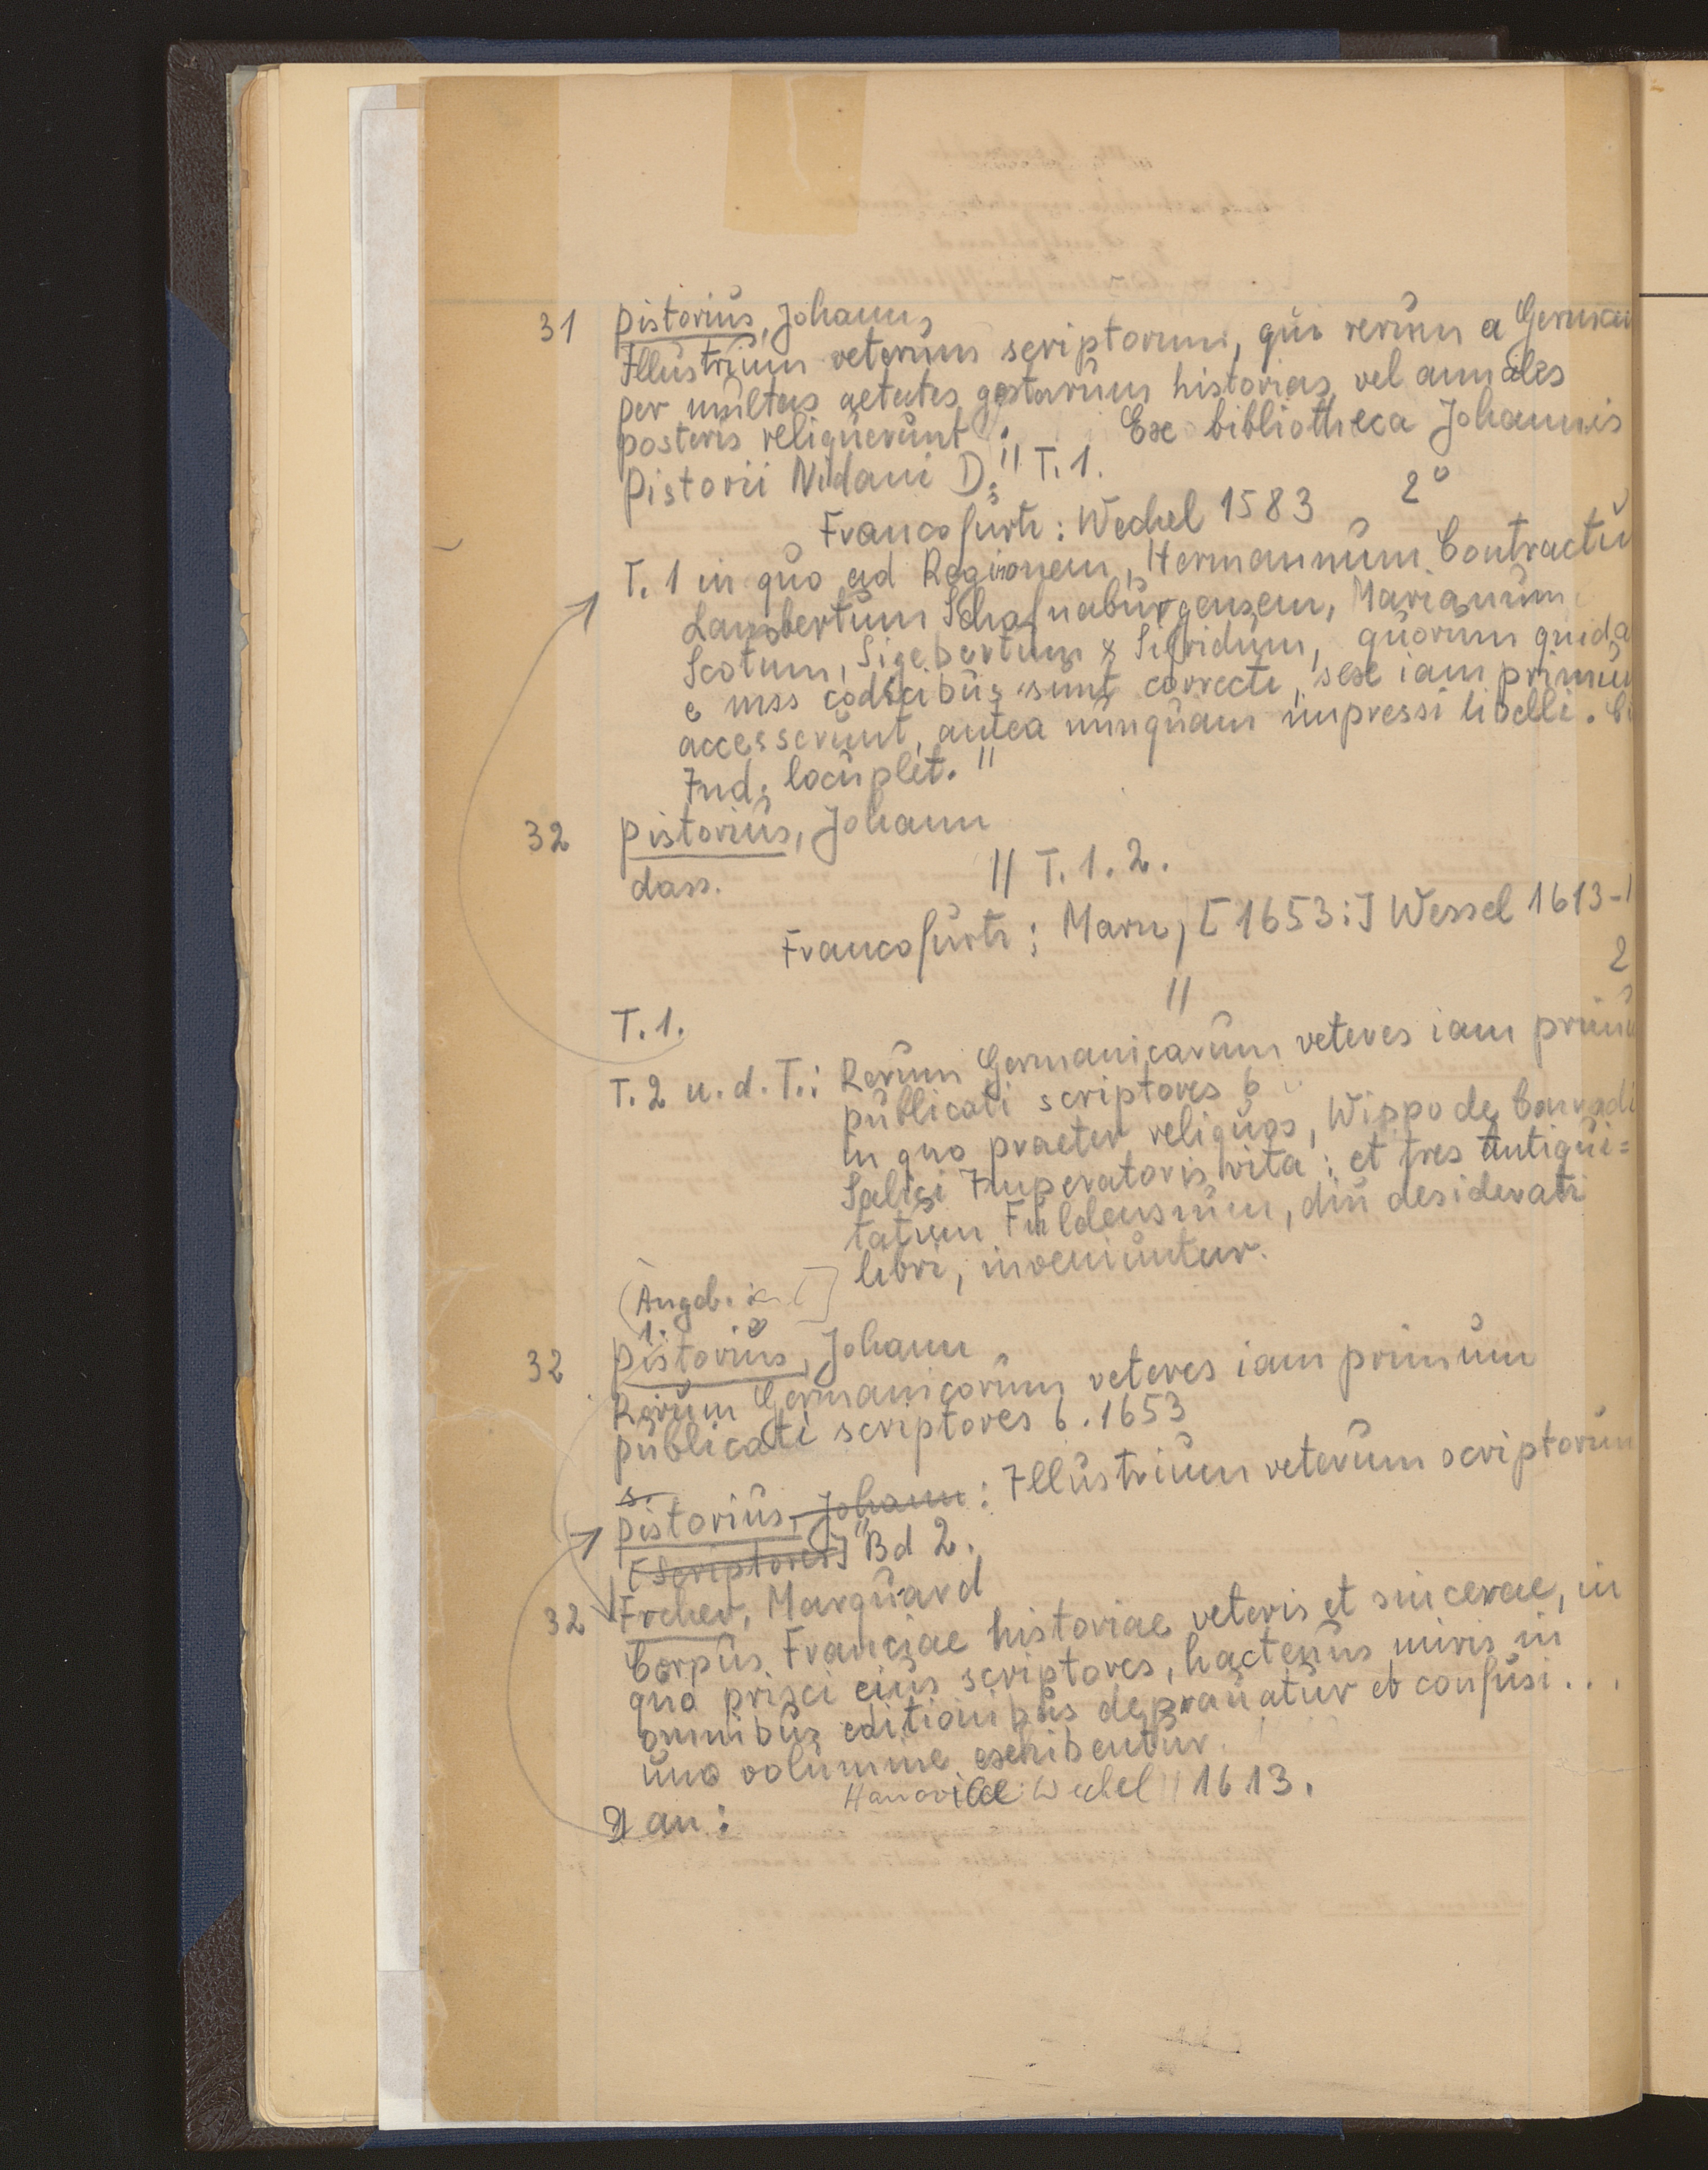 31 Pistorius, Johann,
Illustrium veterum scriptorum, qui rerum a German
per multas aetates gestarum historias vel annales
posteris reliquerunt : Ex bibliotheca Johannis
Pistorii Nidani D. " T. 1.
Francofurti : Wechel 1583 2°
T. 1 in quo ad Reginonem, Hermannum Contractu
Lambertum Schafnaburgensem, Marianum
Scotum, Sigebertum & Sifridum, quorum quida
e mss codicibus sunt correcti, sex iam primum
accesserunt, antea nunquam impressi libelli.
Ind. locuplet. "
32 Pistorius, Johann
dass. // T. 1. 2.
Francofurti : Marn, [1653:] Wessel 1613-
2
"
T. 1.
T. 2 u. d. T.: Rerum Germanicarum veteres iam primu
publicati scriptores 6
in quo praeter reliquos, Wippo de Conradi
Salici Imperatoris vita : et tres Antiqui=
tatum Fuldensium, diu desiderati
libri, inveniuntur.
(Angeb.
1. 2
32 Pistorius, Johann
Rerum Germanicorum veteres iam primum
publicati scriptores 6. 1653
s.
Pistorius, Johann : Illustrium veterum scriptorum
[Scriptores] " Bd 2.
32 Freher, Marquard
Corpus Franciae historiae veteris et sincerae, in
quo prisci eius scriptores, hactenus miris in
omnibus editionibus deprauatur et confusi...
uno volumine exhibentur.
Hanoviae: Wechel 1613.
an: